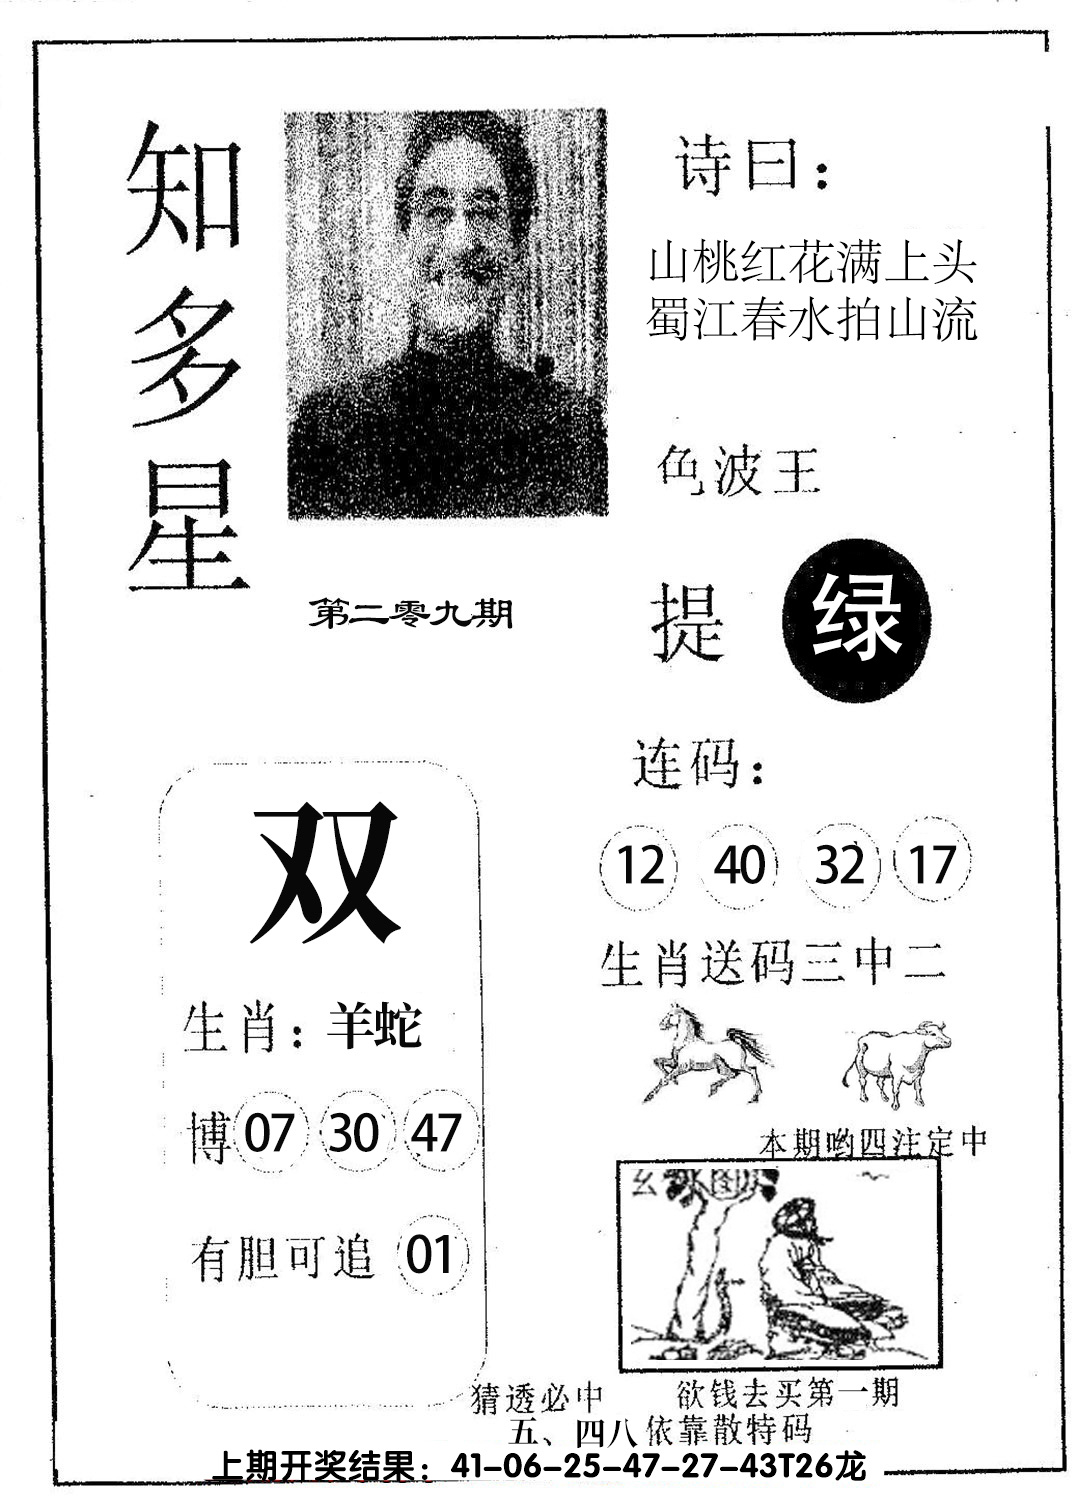 知多星
诗曰：
山桃红花满上头
蜀江春水拍山流
色波王
第二零九期
提 绿
连码：
12 40 32 17
双
生肖送码三中二
生肖：羊蛇
博 07 30 47
本期哟四注定中
玄 图
有胆可追 01
猜透必中 欲钱去买第一期
五、四八依靠散特码
上期开奖结果：41-06-25-47-27-43T26龙